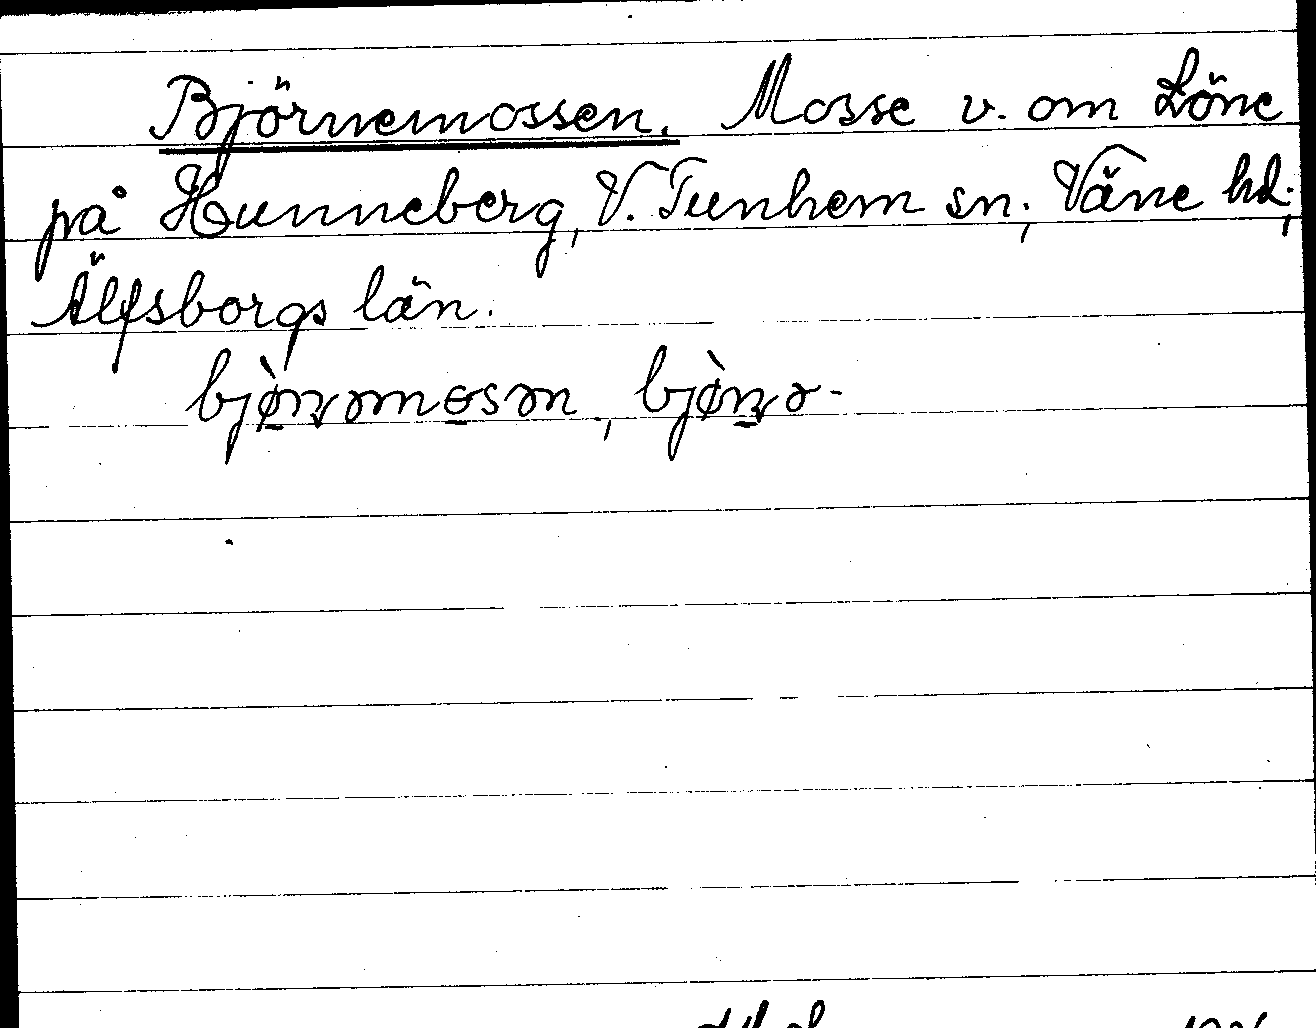 Björnemossen. Mosse v. om Löne
på Hunneberg, V. Tunhem sn; Väne hd;
Älfsborgs län.
bjø̀ṉәmɵsәn, bjø̀ṉә-